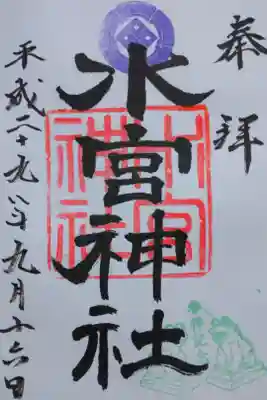 奉拝
水宮神社
平成二十九年九月十六日